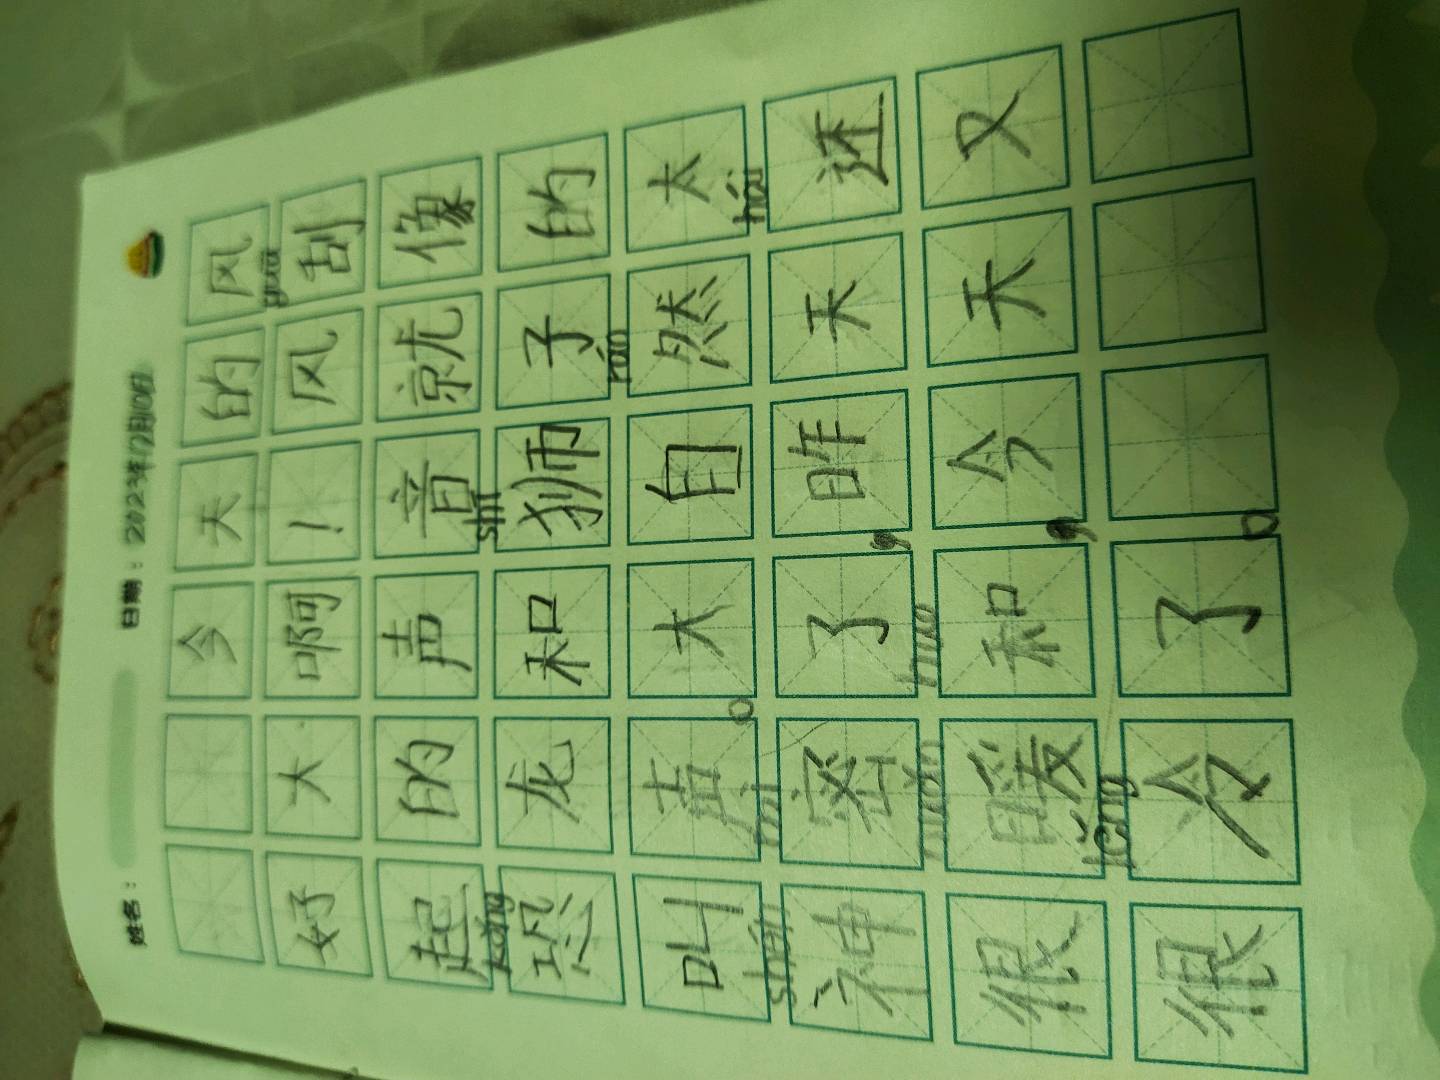 姓名： 日期：2023年12月10日
今天的风
guā
好大啊！风刮
起的声音就像
kǒng shī
恐龙和狮子的
rán
叫声。大自然太
shén mì hái
神密了，昨天还
nuǎn huo
很暖和，今天又
lěng
很冷了。